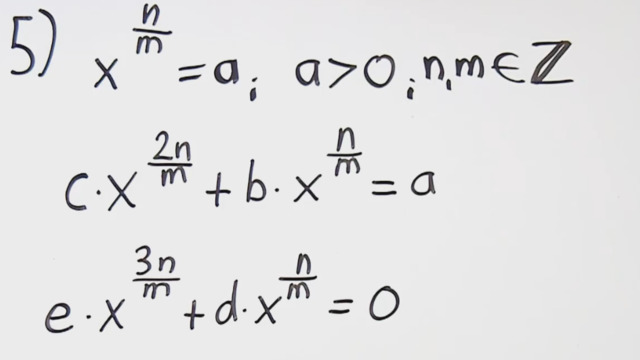 5) x^(n/m) = a; a > 0; n, m ∈ ℤ
c · x^(2n/m) + b · x^(n/m) = a
e · x^(3n/m) + d · x^(n/m) = 0